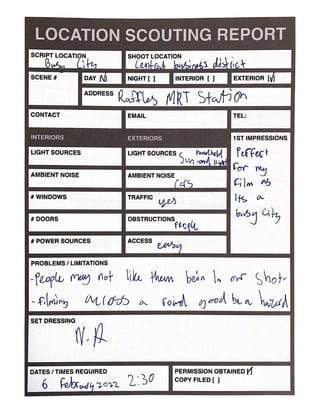 LOCATION SCOUTING REPORT
SCRIPT LOCATION
Busy City
SHOOT LOCATION
Central business district
SCENE #
DAY [✓]
NIGHT [ ]
INTERIOR [ ]
EXTERIOR [✓]
ADDRESS Raffles MRT Station
CONTACT
EMAIL
TEL:
INTERIORS
EXTERIORS
1ST IMPRESSIONS
Perfect
For my
film as
Its a
busy City
LIGHT SOURCES
LIGHT SOURCES handheld
Sun and light
AMBIENT NOISE
AMBIENT NOISE
Cars
# WINDOWS
TRAFFIC
yes
# DOORS
OBSTRUCTIONS
People
# POWER SOURCES
ACCESS
easy
PROBLEMS / LIMITATIONS
-People may not like them bein In our Shot
-filming across a road be a
SET DRESSING
N.A
DATES / TIMES REQUIRED
6 February 2022 2:30
PERMISSION OBTAINED [✓]
COPY FILED [ ]